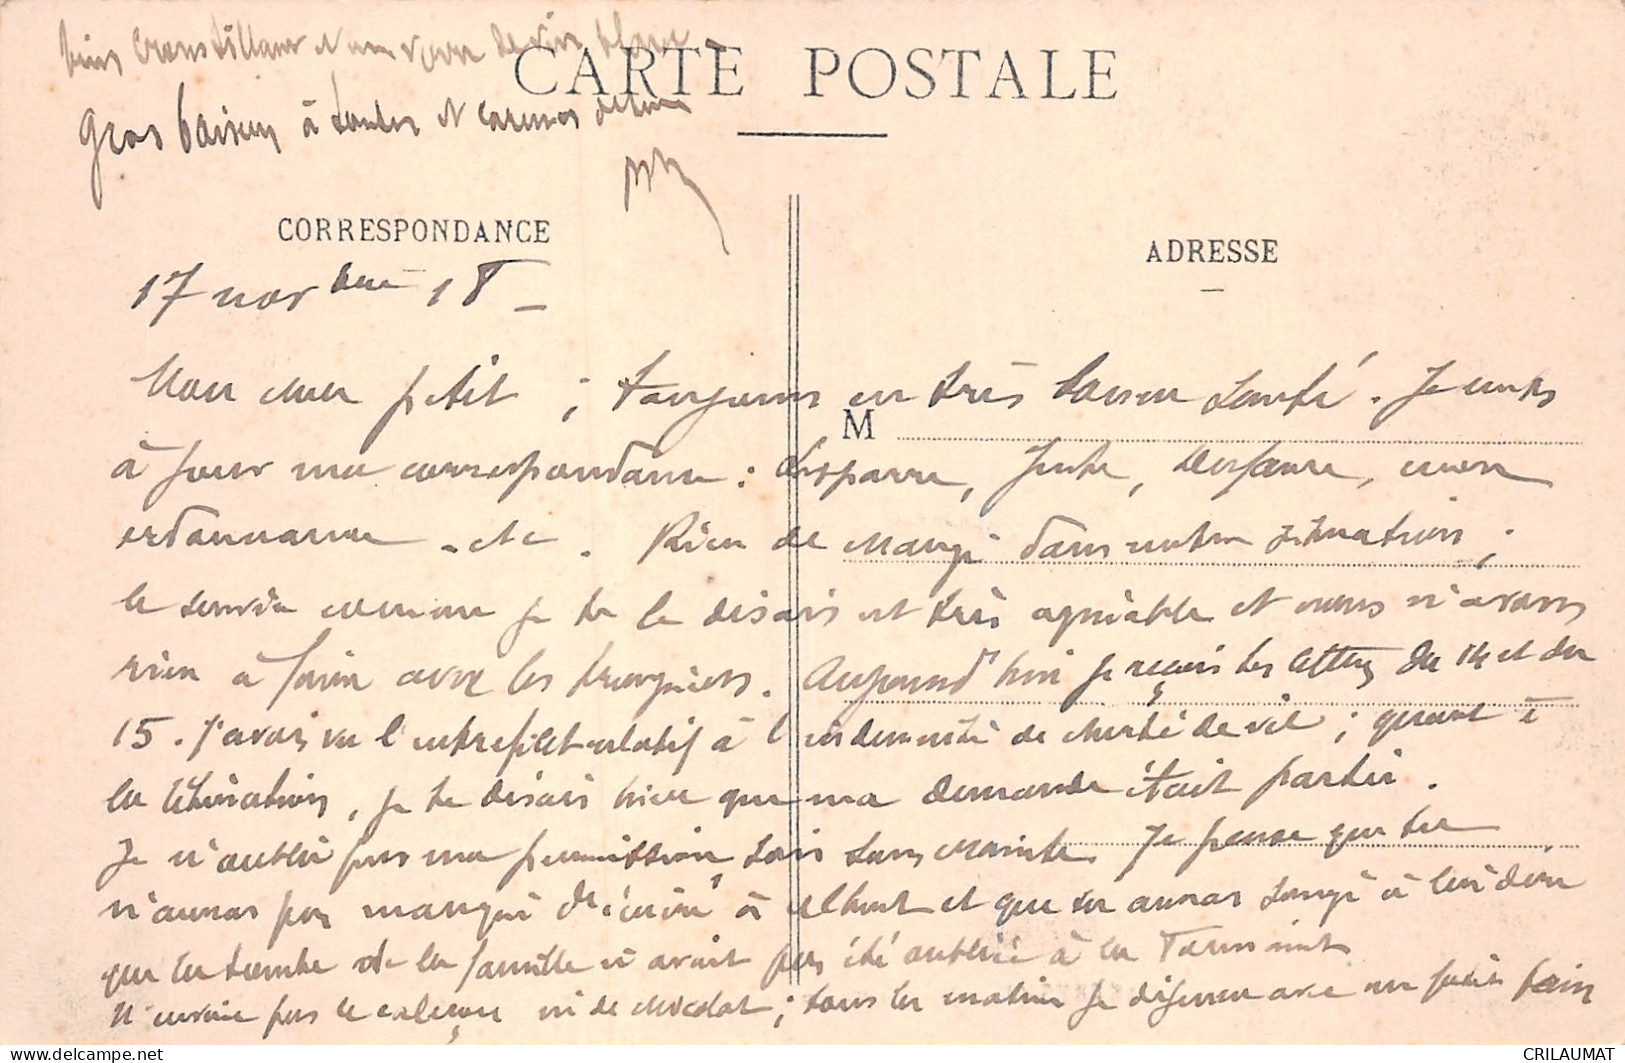 bien croustillant et un verre de vin blanc
Gros baisers à toutes et caresses
CARTE POSTALE
CORRESPONDANCE
ADRESSE
17 novbre 18 –
Mon cher petit ; toujours en très bonne santé. Je mets
M
à jour ma correspondance : Lesparre, mon
ordonnance - etc. Rien de changé dans notre situation ;
le service comme je te le disais est très agréable et nous n'avons
rien à faire avec les troupiers. Aujourd'hui je reçois tes lettres du 14 et du
15. J'avais vu l'entrefilet relatif à l'indemnité de cherté de vie ; quant à
la libération, je te disais hier que ma demande était partie.
Je n'oublie pas ma permission, sois sans crainte. Je pense que tu
n'auras pas manqué d'écrire à Albert et que tu auras songé à lui dire
que la tombe de la famille n'avait pas été oubliée à la Toussaint
N'envoie pas le caleçon ni de chocolat ; tous les matins je déjeune avec un petit pain
CRILAUMAT